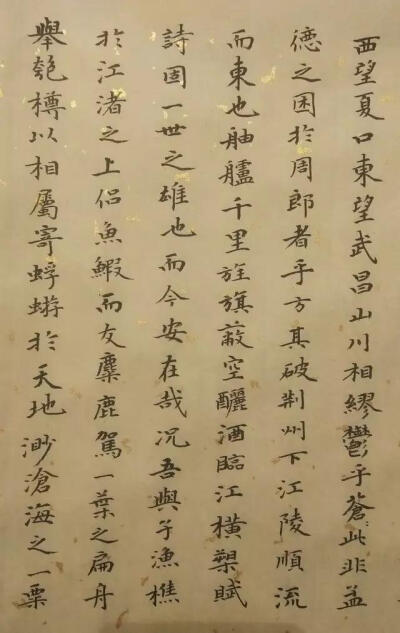 西望夏口東望武昌山川相繆鬱乎蒼〻此非孟
德之困於周郎者乎方其破荆州下江陵順流
而東也舳艫千里旌旗蔽空釃酒臨江橫槊賦
詩固一世之雄也而今安在哉況吾與子漁樵
於江渚之上侶魚鰕而友麋鹿駕一葉之扁舟
舉匏樽以相屬寄蜉蝣於天地渺滄海之一粟